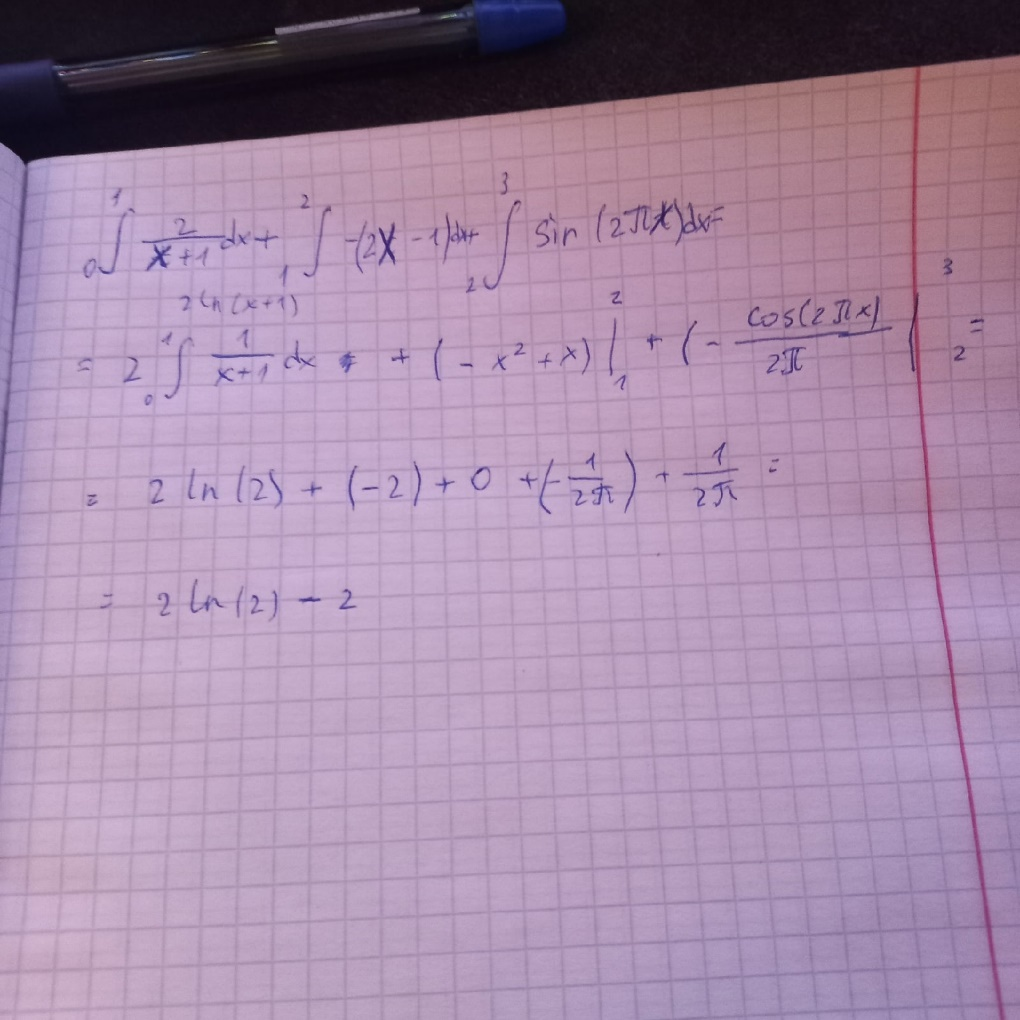 ₀∫¹ 2/(x+1) dx + ₁∫² -(2x-1)dx + ₂∫³ sin(2πx)dx =
2 ln(x+1)
= 2 ₀∫¹ 1/(x+1) dx + (-x² + x) |₁² + (- cos(2πx)/2π |₂³ =
= 2 ln(2) + (-2) + 0 + (-1/2π) + 1/2π =
= 2 ln(2) - 2